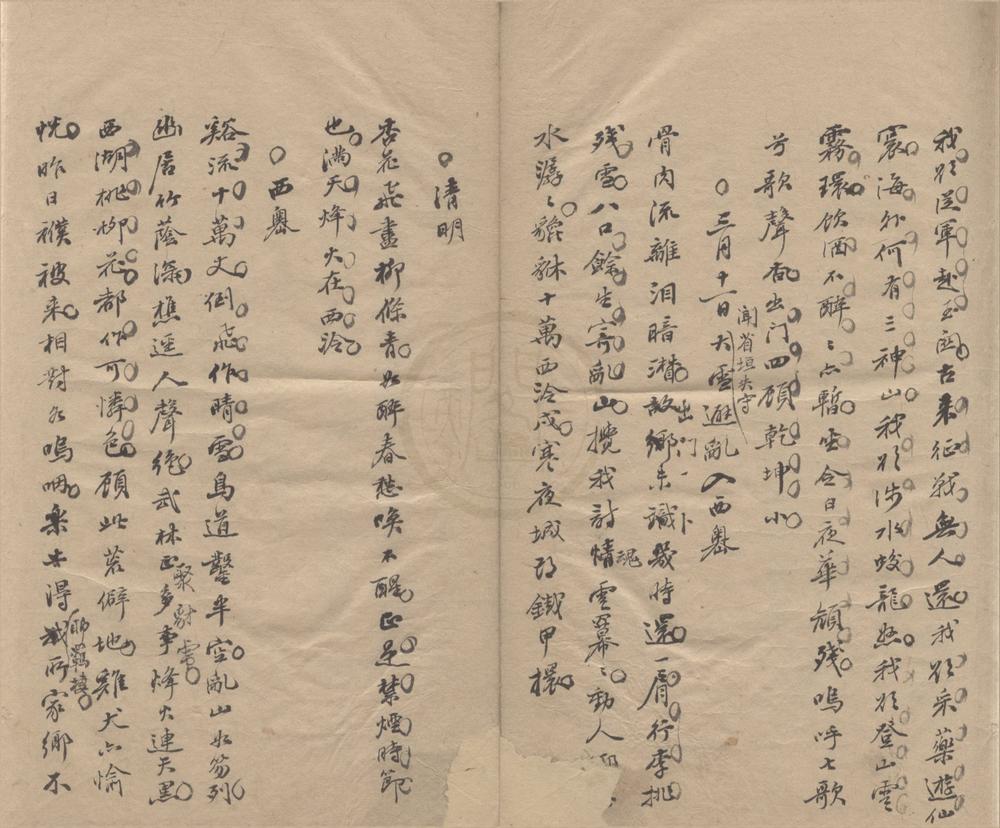 我欲從軍赴玉關古來征戰無人還我欲采藥遊仙
寰海外何有三神山我欲涉水蛟龍怒我欲登山雲
霧環飲酒不醉〻亦暫曇今日夜華顏殘嗚呼七歌
兮歌聲杳出门四顧乾坤小
○三月十一日大雪避亂入西嶴
聞省垣失守
骨肉流離泪暗潸故鄉未識幾時還一肩行李挑
出門一卜
殘雪八口餘生寄亂山攬我詩情雲冪〻動人
魂
水潺〻貔貅十萬西泠戍寒夜城頭鐵甲擐
○清明
杏花飛盡柳條青如醉春愁喚不醒正是禁煙時節
也滿天烽火在西泠
○西嶴
谿流十萬丈倒飛作晴雪鳥道鑿半空亂山如笏列
幽居竹蔭深樵逕人聲絕武林正多事烽火連天黑
聚尉雲
西湖桃柳花都作可憐色顧此荒僻地雞犬亦愉
悅昨日襆被來相對各嗚咽樂土得我所家鄉不
聊羈棲